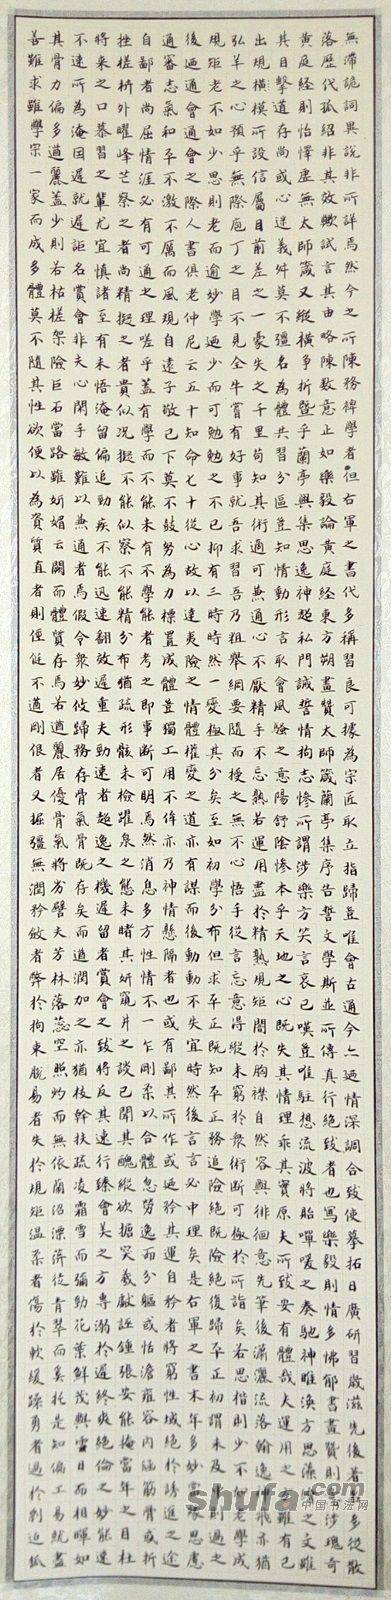 無滯詭詞異說非所詳焉然今之所陳務裨學者但右軍之書代多稱習良可據為宗匠取立指歸豈唯會古通今亦迺情深調合致使摹拓日廣研習歲滋先後著名多從散
落歷代孤紹非其效歟試言其由略陳數意止如樂毅論黃庭經東方朔畫贊太師箴蘭亭集序告誓文斯並所傳真行絕致者也寫樂毅則情多怫鬱書畫贊則意涉瑰奇
黃庭經則怡懌虛無太師箴又縱橫爭折暨乎蘭亭興集思逸神超私門誡誓情拘志慘所謂涉樂方笑言哀已嘆豈唯駐想流波將貽嘽噯之奏馳神睢渙方思藻繪之文雖
其目擊道存尚或心迷義舛莫不彊名為體共習分區豈知情動形言取會風騷之意陽舒陰慘本乎天地之心既失其情理乖其實原夫所致安有體哉夫運用之方雖有己
出規模所設信屬目前差之一豪失之千里苟知其術適可兼通心不厭精手不忘熟若運用盡於精熟規矩闇於胸襟自然容與徘徊意先筆後瀟灑流落翰逸神飛亦猶
弘羊之心預乎無際庖丁之目不見全牛嘗有好事就吾求習吾乃粗舉綱要隨而授之無不心悟手從言忘意得縱未窮於眾術斷可極於所詣矣若思楷則少不如老學成
規矩老不如少思則老而逾妙學迺少而可勉勉之不已抑有三時時然一變極其分矣至如初學分布但求平正既知平正務追險絕既能險絕復歸平正初謂未及中則過之
後迺通會通會之際人書俱老仲尼云五十知命七十從心故以達夷險之情體權變之道亦猶謀而後動動不失宜時然後言言必中理矣是右軍之書末年多妙當緣思慮
通審志氣和平不激不厲而風規自遠子敬已下莫不鼓努為力標置成體豈獨工用不侔亦乃神情懸隔者也或有鄙其所作或迺矜其運自矜者將窮性域絕於誘進之途
自鄙者尚屈情涯必有可通之理嗟乎蓋有學而不能未有不學能者考之即事斷可明焉然消息多方性情不一乍剛柔以合體忽勞逸而分軀或恬澹雍容內涵筋骨或折
挫槎枿外曜峰芒察之者尚精擬之者貴似況擬不能似察不能精分布猶疏形骸未檢躍泉之態未睹其妍窺井之談已聞其醜縱欲搪突羲獻誣鍾張安能掩當年之目杜
將來之口慕習之輩尤宜慎諸至有未悟淹留偏追勁疾不能迅速翻效遲重夫勁速者超逸之機遲留者賞會之致將反其速行臻會美之方專溺於遲終爽絕倫之妙能速
不速所為淹留因遲就遲詎名賞會非夫心閑手敏難以兼通者焉假令眾妙攸歸務存骨氣骨既存矣而遒潤加之亦猶枝幹扶疏凌霜雪而彌勁花葉鮮茂與雲日而相暉如
其骨力偏多遒麗蓋少則若枯槎架險巨石當路雖妍媚云闕而體質存焉若遒麗居優骨氣將劣譬夫芳林落蕊空照灼而無依蘭沼漂萍徒青翠而奚托是知偏工易就盡
善難求雖學宗一家而成多體莫不隨其性欲便以為資質直者則俓侹不遒剛佷者又掘彊無潤矜斂者弊於拘束脫易者失於規矩溫柔者傷於軟緩躁勇者過於剽迫狐
shufa.com
中国书法网